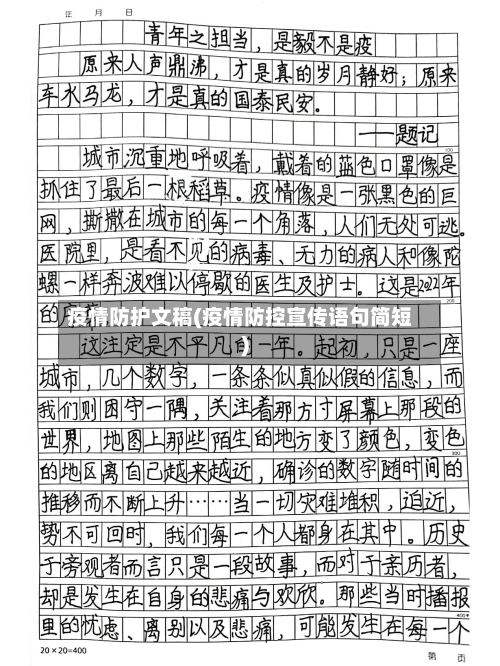 年 月 日
青年之担当，是毅不是疫
原来人声鼎沸，才是真的岁月静好；原来
车水马龙，才是真的国泰民安。
——题记
100
城市沉重地呼吸着，戴着的蓝色口罩像是
抓住了最后一根稻草。疫情像是一张黑色的巨
网，撕撒在城市的每一个角落，人们无处可逃。
医院里，是看不见的病毒、无力的病人和像陀
螺一样奔波难以停歇的医生及护士。这是2022年
200
的
疫情防护文稿(疫情防控宣传语句简短
)
这注定是不平凡的一年。起初，只是一座
城市，几个数字，一条条似真似假的信息，而
我们则困守一隅，关注着那方寸屏幕上那段的
世界，地图上那些陌生的地方变了颜色，变色
300
的地区离自己越来越近，确诊的数字随时间的
推移而不断上升……当一切灾难堆积，迫近，
势不可回时，我们每一个人都身在其中。历史
于旁观者而言只是一段故事，而对于亲历者，
却是发生在自身的悲痛与欢欣。那些当时播报
400
里的忧虑、离别以及悲痛，可能发生在每一个
20×20=400
第 页